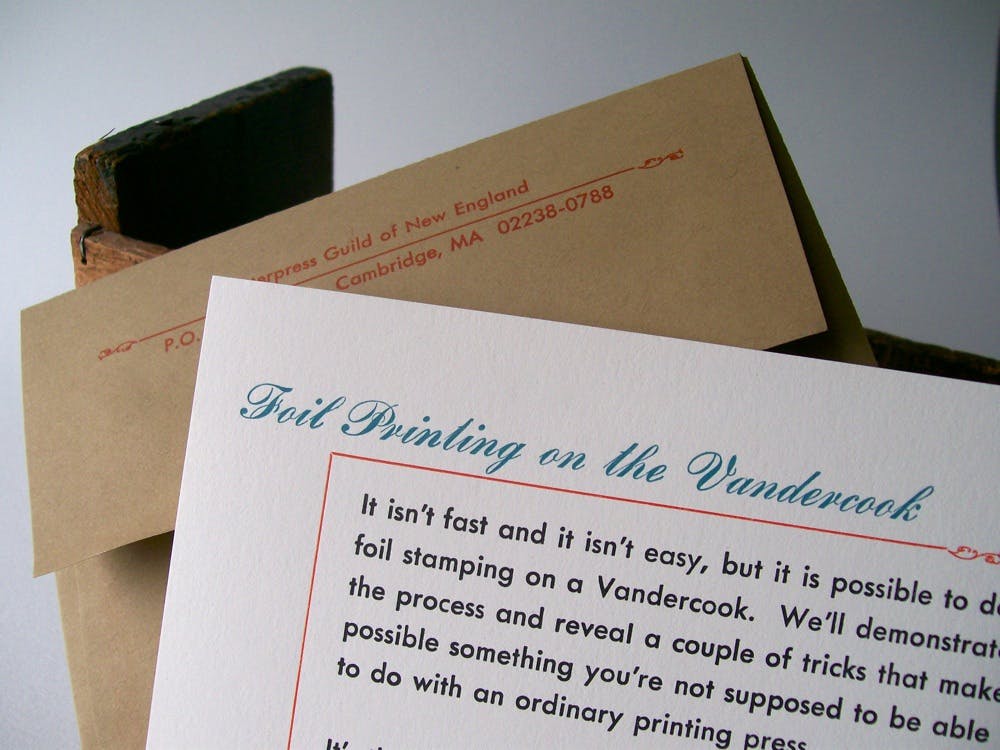 terpress Guild of New England
P.O.
Cambridge, MA 02238-0788
Foil Printing on the Vandercook
It isn't fast and it isn't easy, but it is possible to d
foil stamping on a Vandercook. We'll demonstrat
the process and reveal a couple of tricks that make
possible something you're not supposed to be able
to do with an ordinary printing press
It's